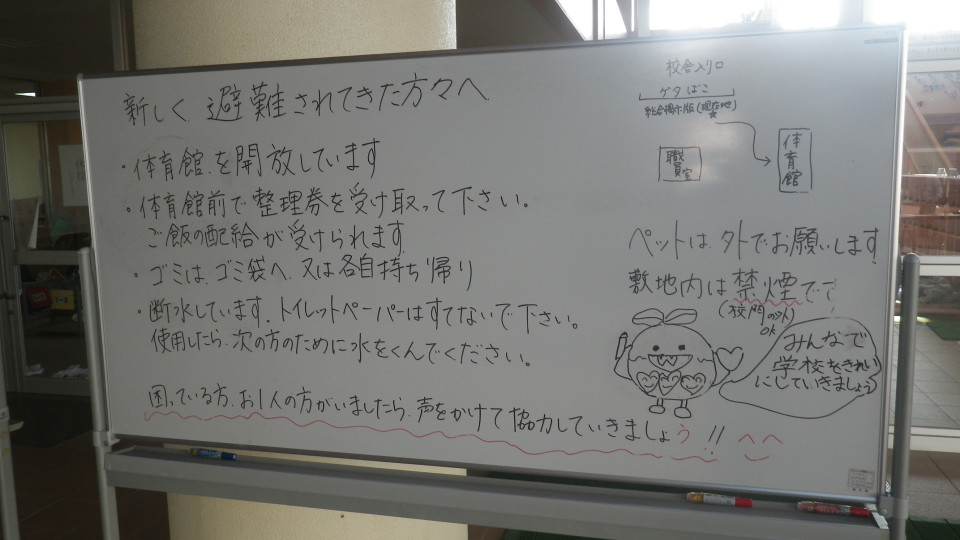 新しく避難されてきた方々へ
・体育館を開放しています
・体育館前で整理券を受け取って下さい。
ご飯の配給が受けられます
・ゴミは、ゴミ袋へ、又は各自持ち帰り
・断水しています。トイレットペーパーはすてないで下さい。
使用したら、次の方のために水をくんでください。
困っている方、お1人の方がいましたら、声をかけて協力していきましょう!! ^^
校舎入り口
ゲタばこ
総合掲示版(現在地)
職員室
体育館
ペットは外でお願いします
敷地内は禁煙で
(校門の外)
OK
みんなで
学校をきれい
にしていきましょう